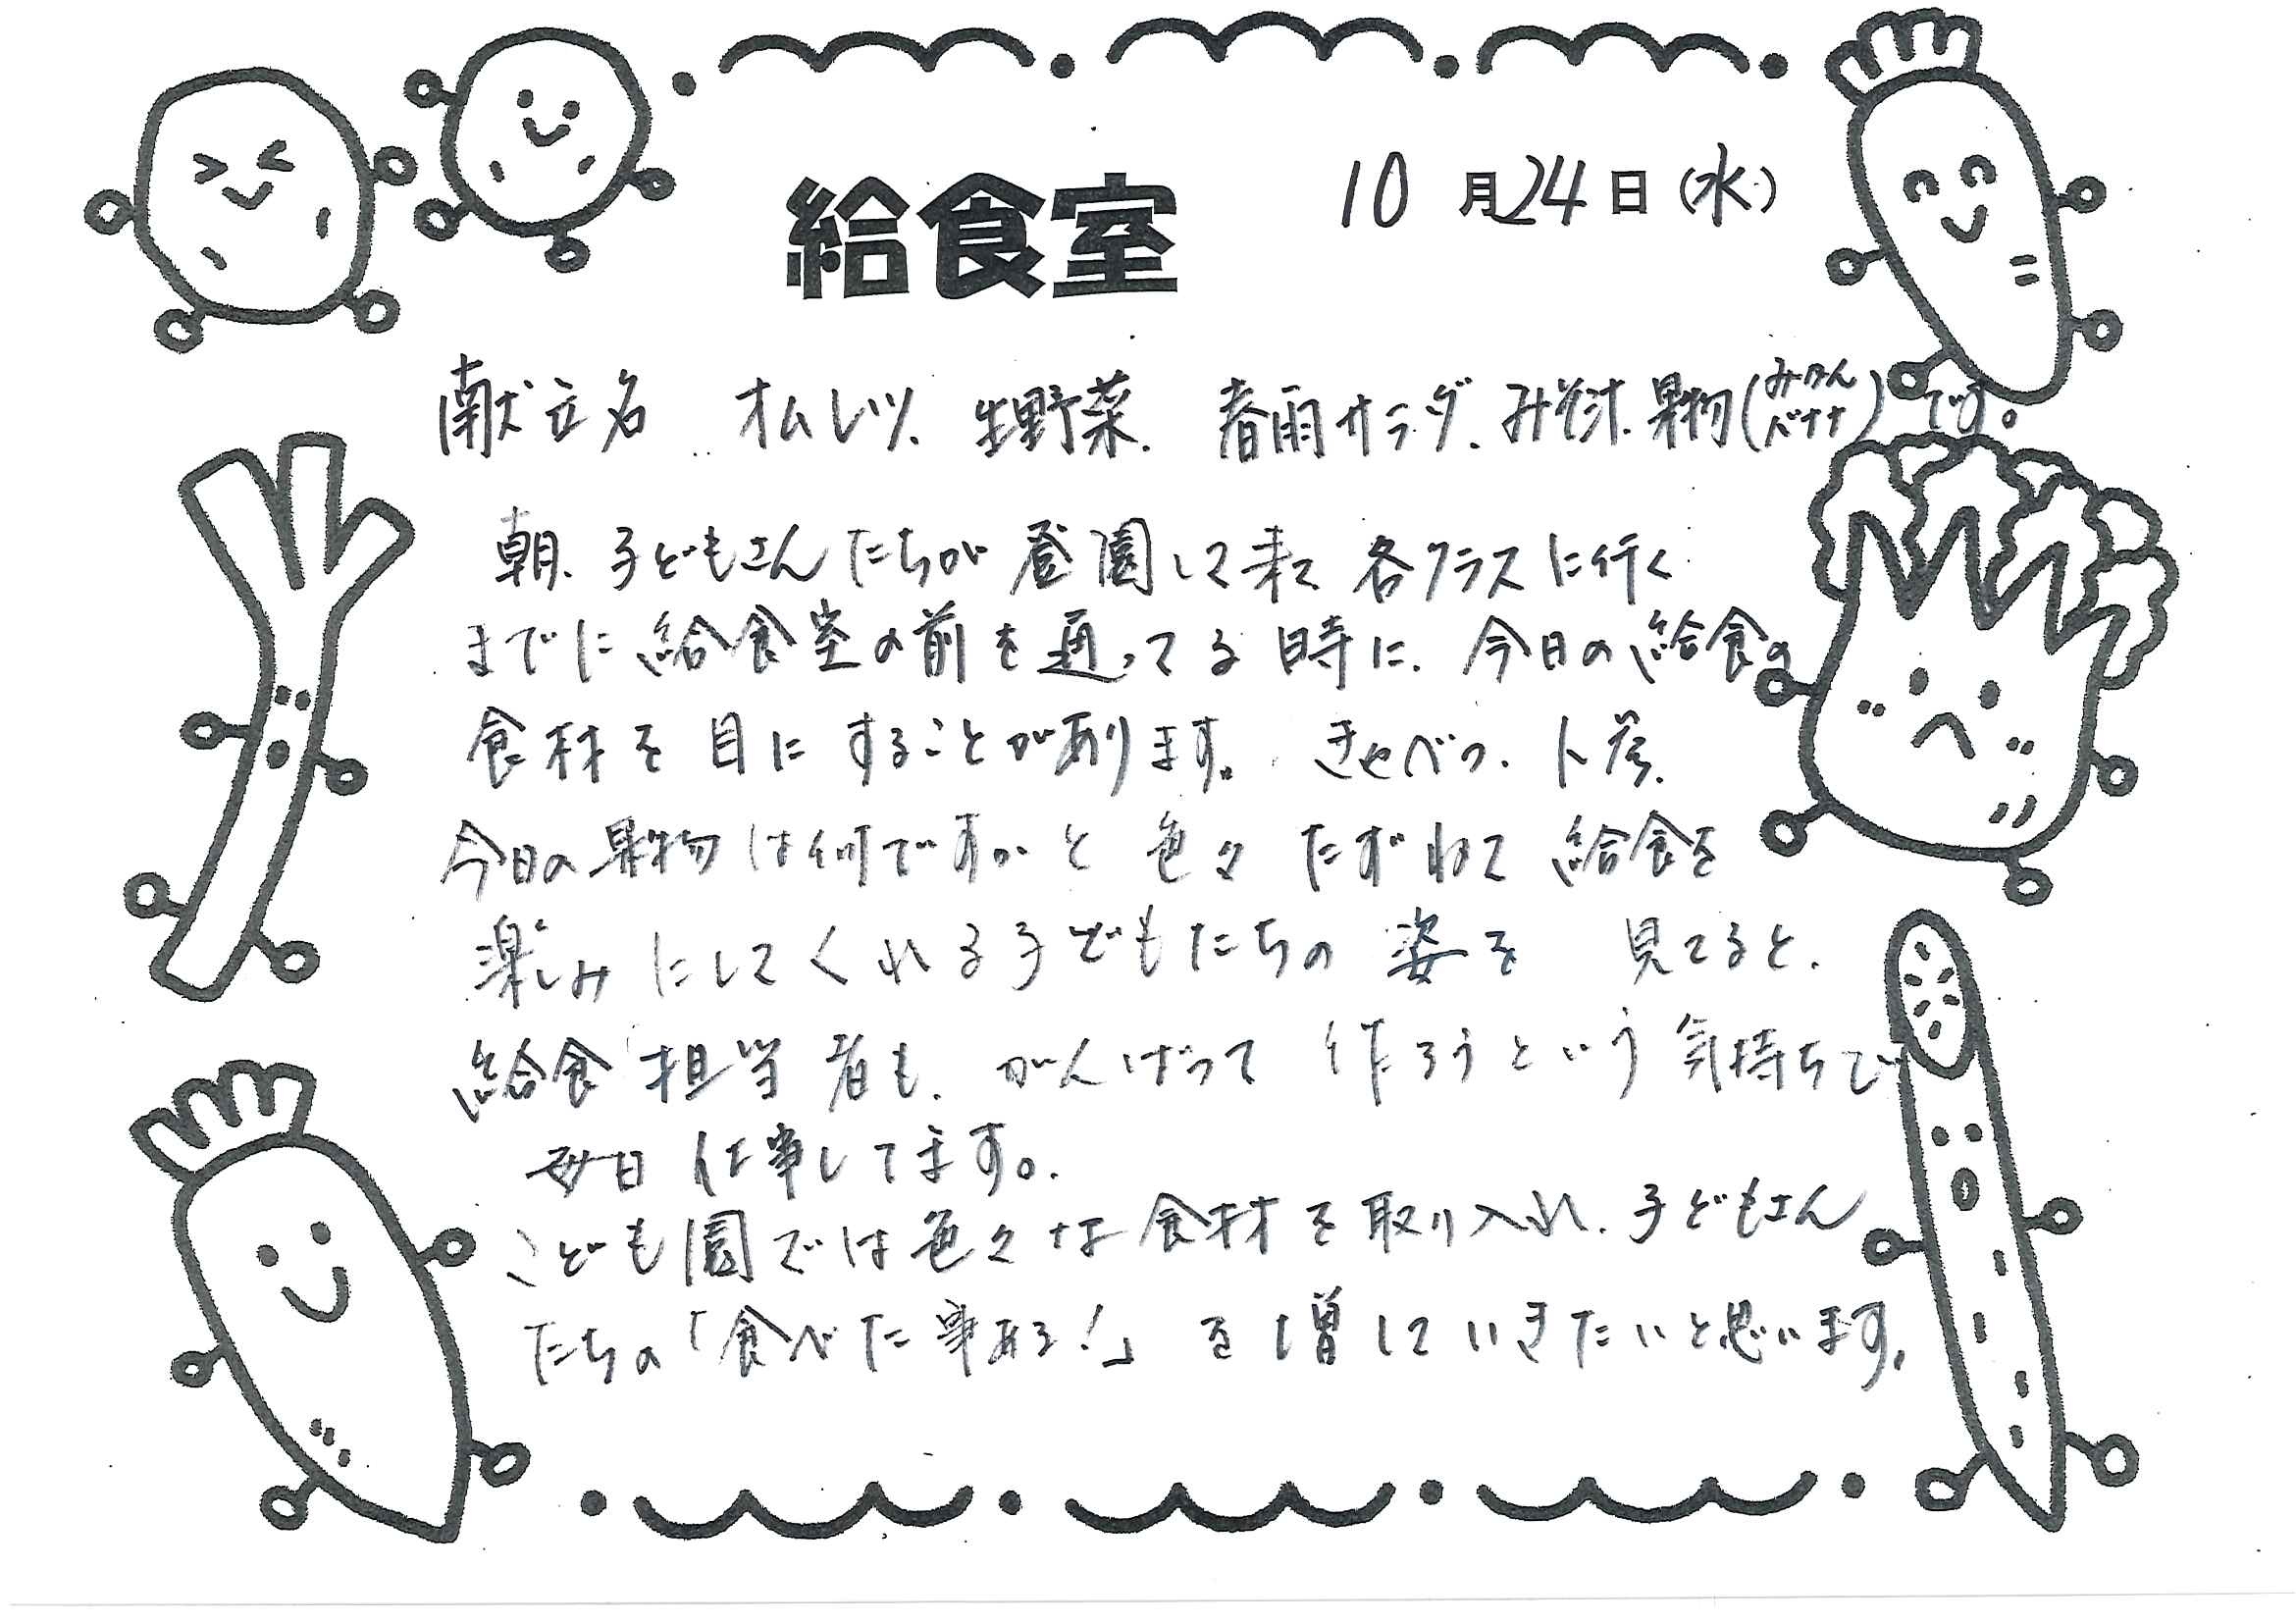 給食室
10月24日(水)
献立名 オムレツ、生野菜、春雨サラダ、みそ汁、果物(みかん バナナ)です。
朝、子どもさんたちが登園して来て各クラスに行く
までに給食室の前を通ってる時に、今日の給食の
食材を目にすることがあります。きゃべつ、人参、
今日の果物は何ですかと色々たずねて給食を
楽しみにしてくれる子どもたちの姿を 見てると、
給食担当者も、がんばって作ろうという気持ちで
毎日仕事してます。
こども園では色々な食材を取り入れ、子どもさん
たちの「食べた事ある!」を増していきたいと思います。